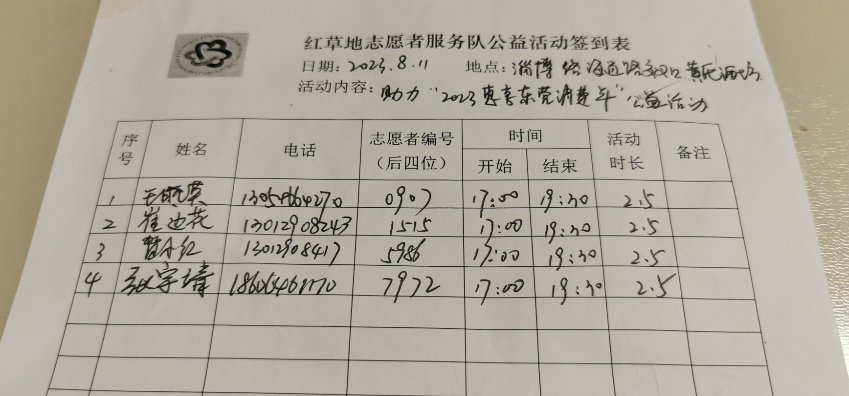 红草地志愿者服务队公益活动签到表
日期：2023.8.11 地点：淄博路
活动内容：助力“2023惠享东莞消费年”公益活动
序号 姓名 电话 志愿者编号（后四位） 时间 活动时长 备注
开始 结束
1 0907 17:00 19:30 2.5
2 崔迎花 13012908243 1515 17:00 19:30 2.5
3 13012908417 5986 17:00 19:30 2.5
4 7972 17:00 19:30 2.5